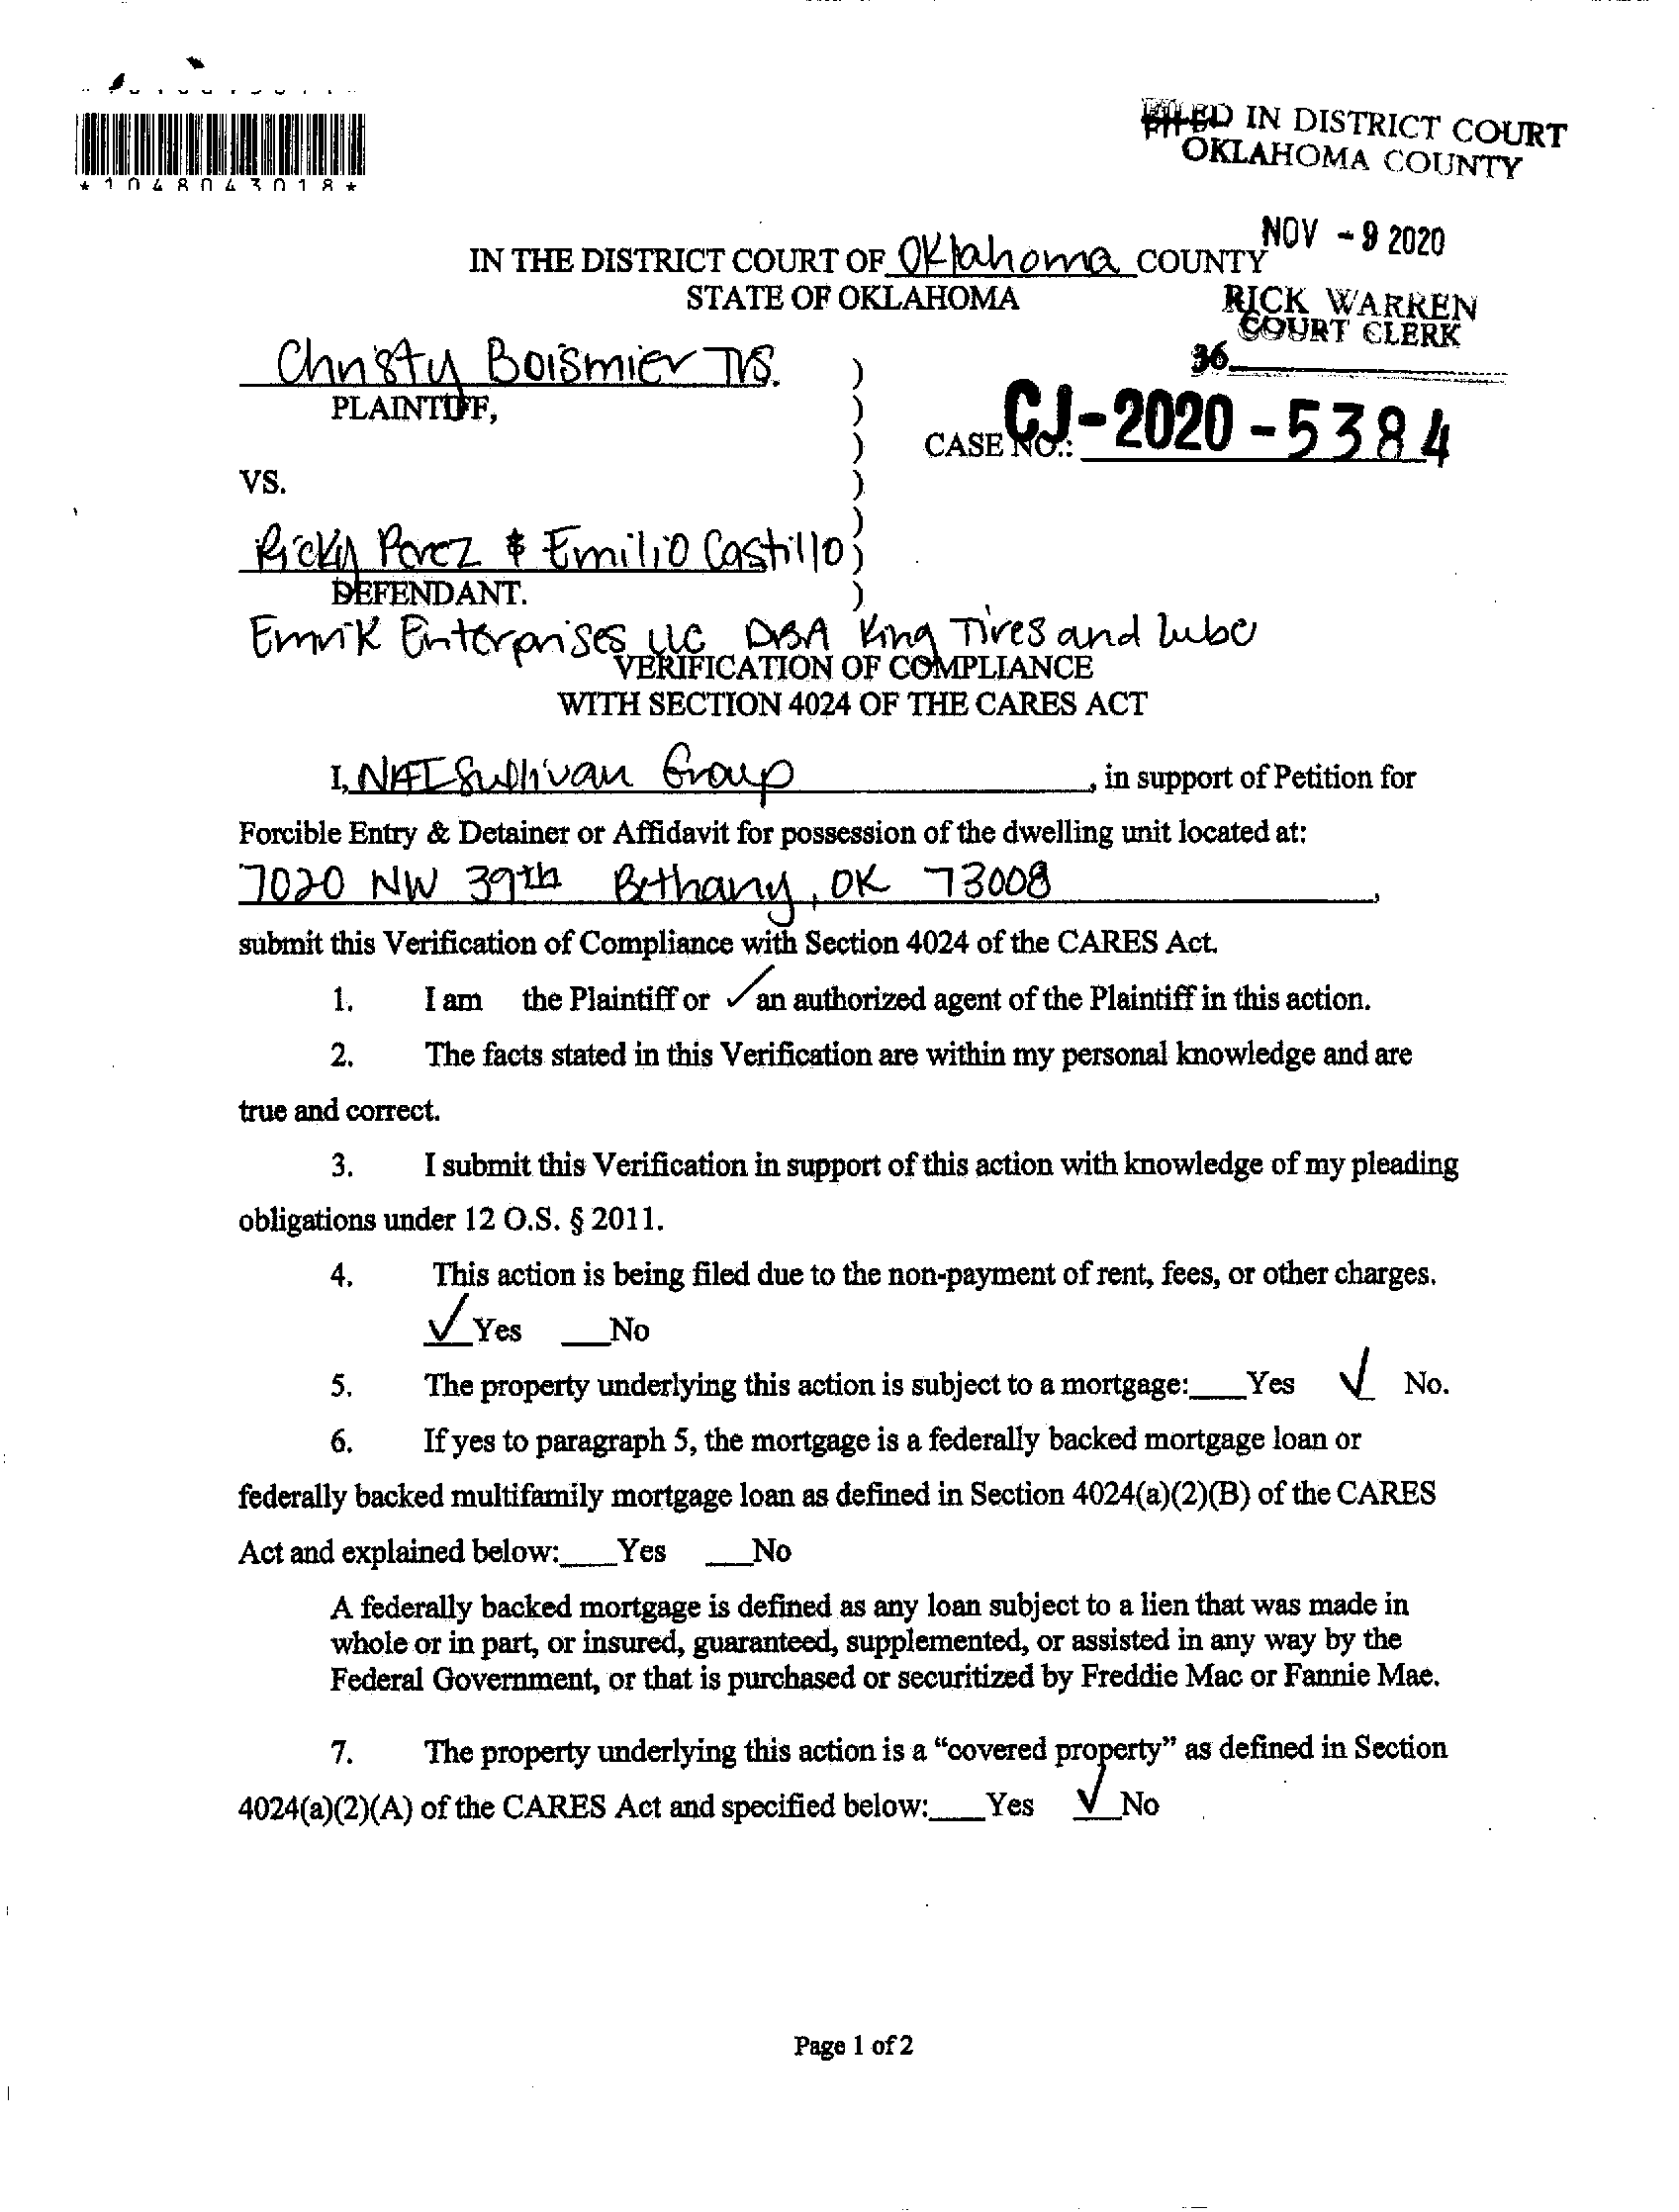 *1048043018*
FILED IN DISTRICT COURT
OKLAHOMA COUNTY
NOV - 9 2020
IN THE DISTRICT COURT OF Oklahoma COUNTY
STATE OF OKLAHOMA
RICK WARREN
COURT CLERK
36
Christy Boismier TVS. )
PLAINTIFF, )
CASE NO.: CJ-2020-5384
VS. )
Ricky Perez & Emilio Castillo )
DEFENDANT. )
Emrik Enterprises LLC DBA King Tires and Lube
VERIFICATION OF COMPLIANCE
WITH SECTION 4024 OF THE CARES ACT
I, NAI Sullivan Group, in support of Petition for
Forcible Entry & Detainer or Affidavit for possession of the dwelling unit located at:
7020 NW 39th Bethany, OK 73008,
submit this Verification of Compliance with Section 4024 of the CARES Act.
1. I am the Plaintiff or ✓ an authorized agent of the Plaintiff in this action.
2. The facts stated in this Verification are within my personal knowledge and are
true and correct.
3. I submit this Verification in support of this action with knowledge of my pleading
obligations under 12 O.S. § 2011.
4. This action is being filed due to the non-payment of rent, fees, or other charges.
✓ Yes ___No
5. The property underlying this action is subject to a mortgage:___Yes ✓ No.
6. If yes to paragraph 5, the mortgage is a federally backed mortgage loan or
federally backed multifamily mortgage loan as defined in Section 4024(a)(2)(B) of the CARES
Act and explained below:___Yes ___No
A federally backed mortgage is defined as any loan subject to a lien that was made in
whole or in part, or insured, guaranteed, supplemented, or assisted in any way by the
Federal Government, or that is purchased or securitized by Freddie Mac or Fannie Mae.
7. The property underlying this action is a "covered property" as defined in Section
4024(a)(2)(A) of the CARES Act and specified below:___Yes ✓ No
Page 1 of 2